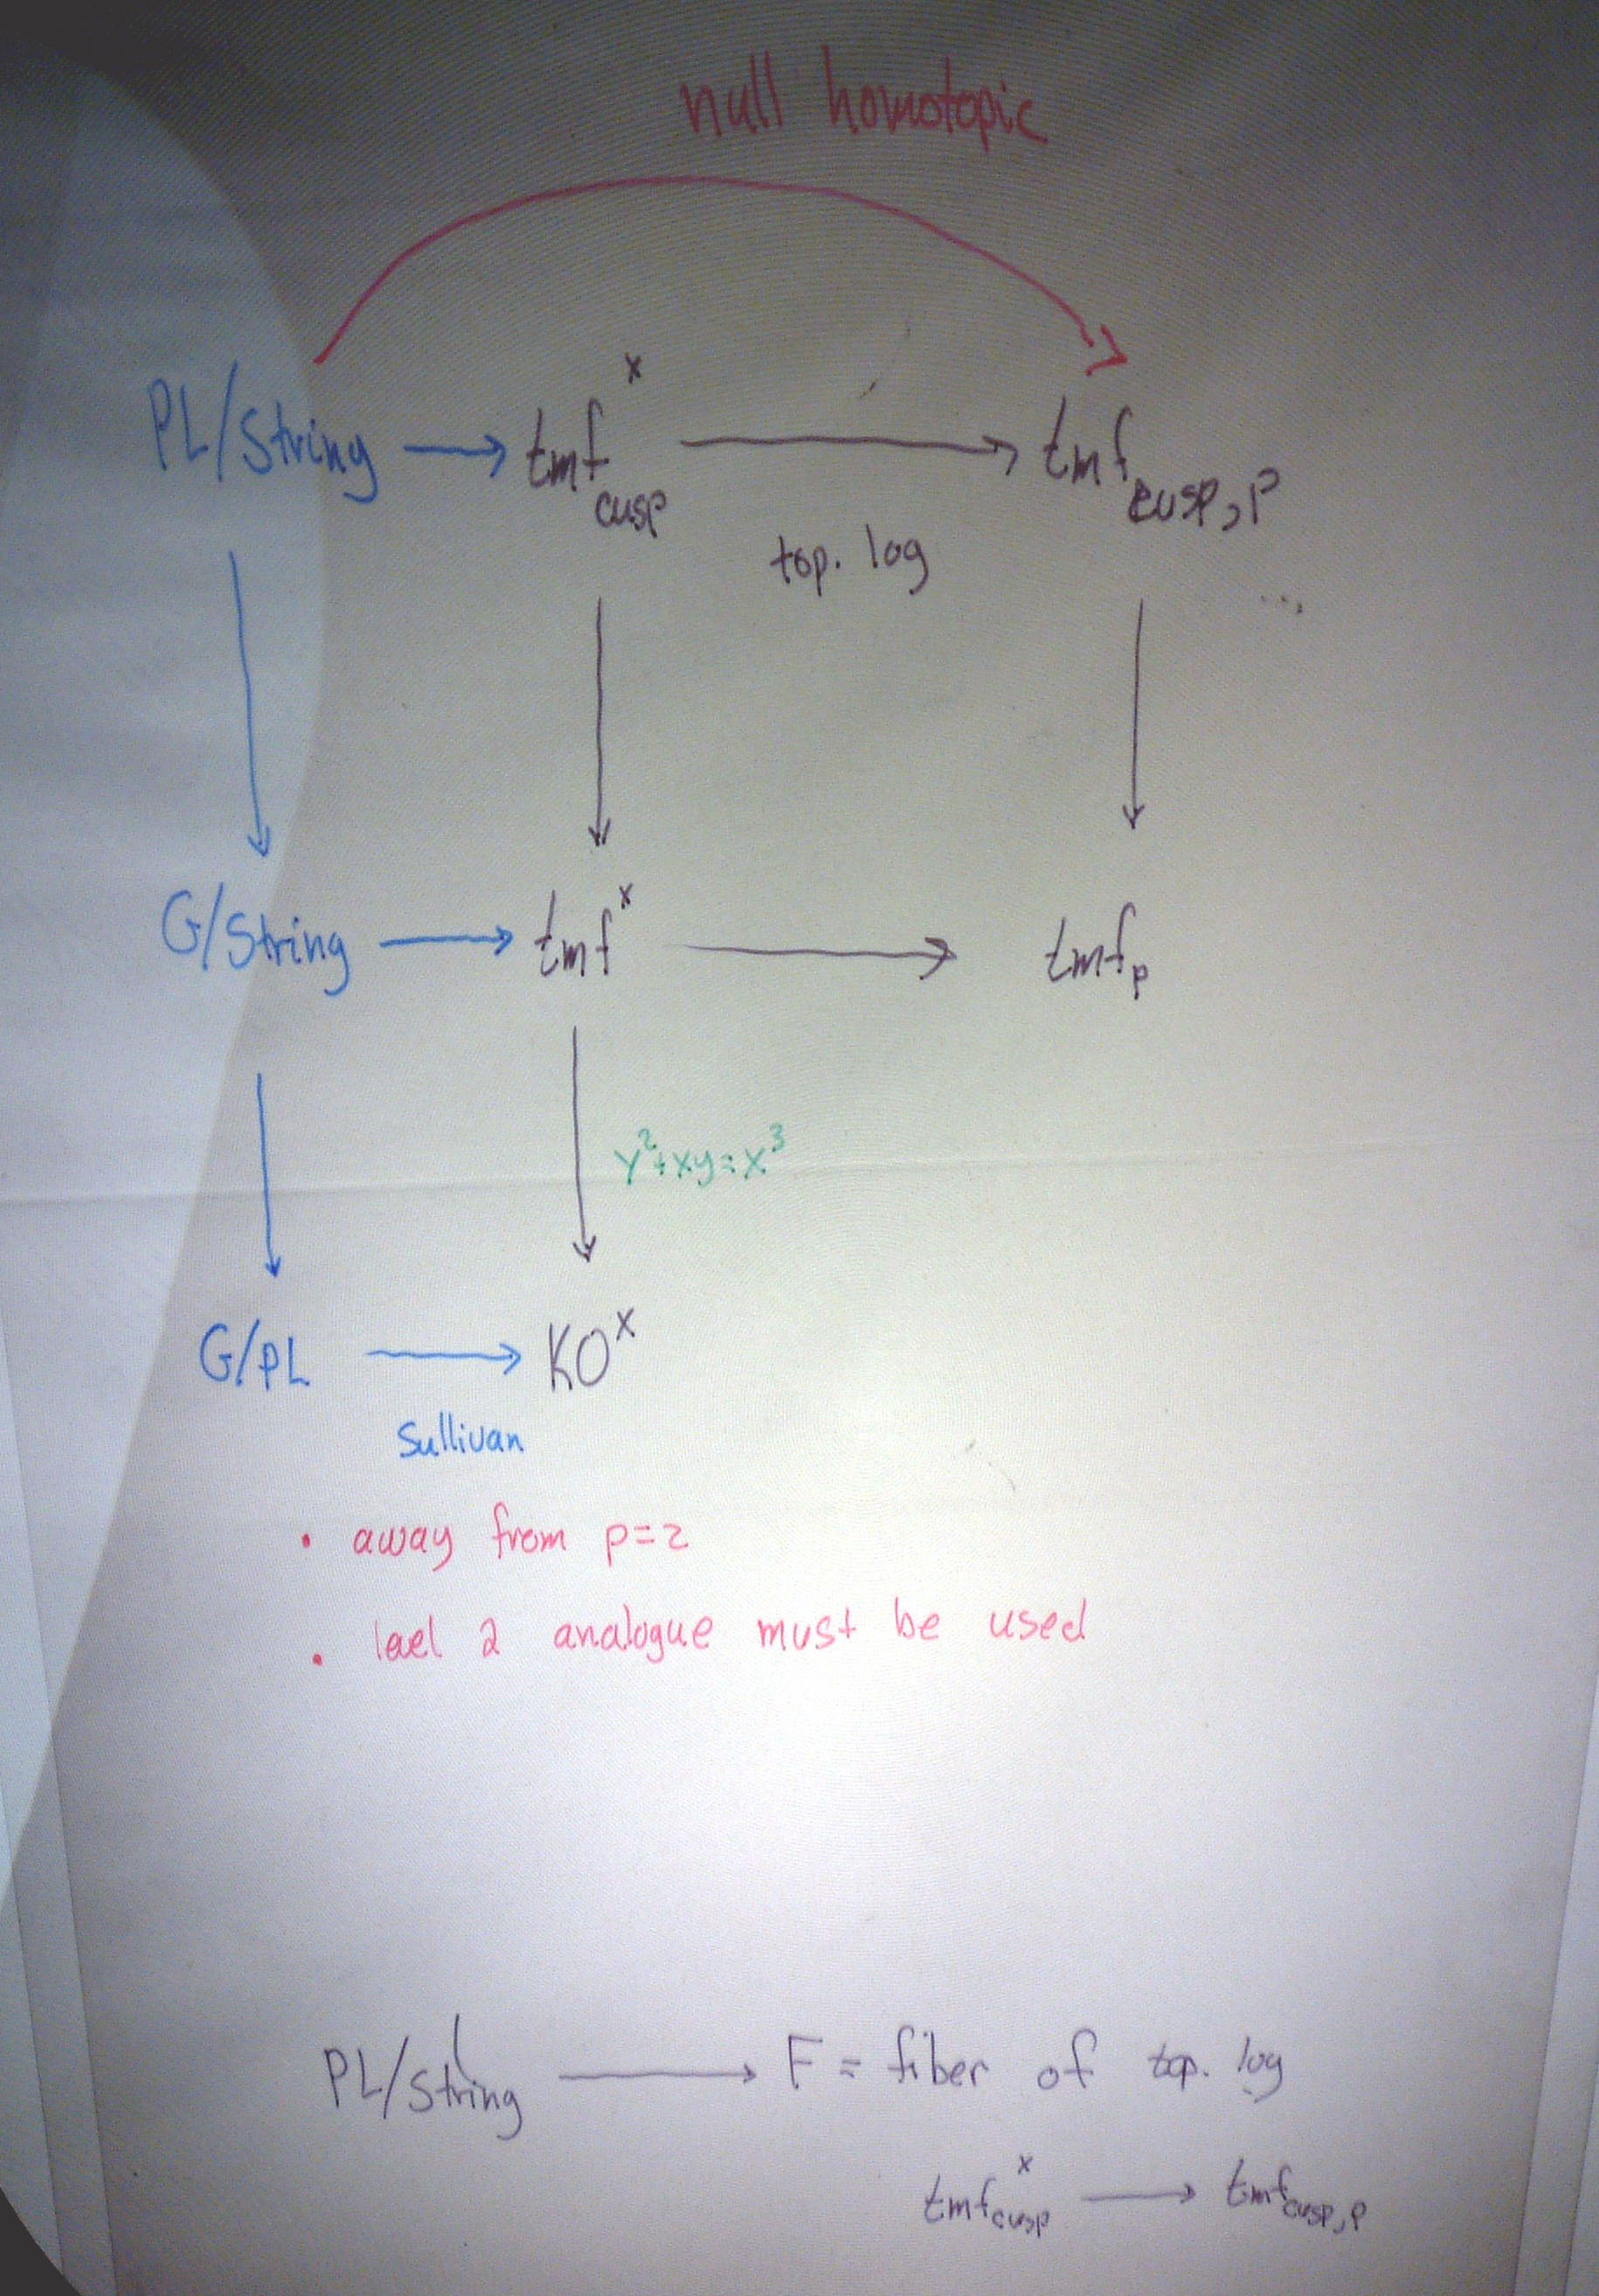 null homotopic
PL/String → tmf^x_cusp → tmf_cusp,p
top. log
G/String → tmf^x → tmf_p
y²+xy=x³
G/PL → KO^x
Sullivan
• away from p=2
• lael 2 analogue must be used
PL/String → F = fiber of top. log
tmf^x_cusp → tmf_cusp,p